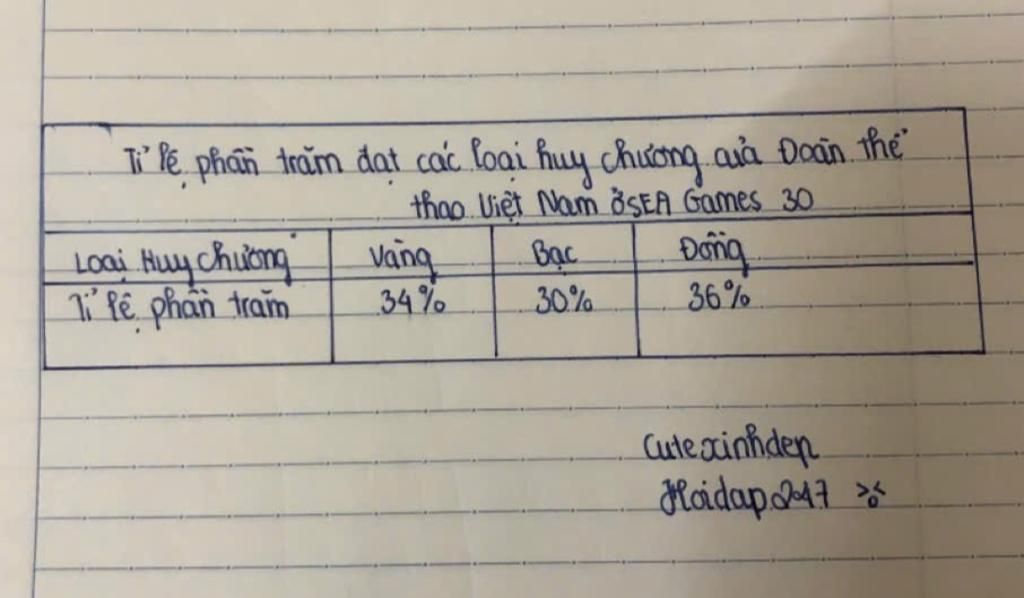 Tỉ lệ phần trăm đạt các loại huy chương của Đoàn thể
thao Việt Nam ở SEA Games 30
Loại Huy chương Vàng Bạc Đồng
Tỉ lệ phần trăm 34% 30% 36%
Cutexinhdep
Hoidap247 >.<